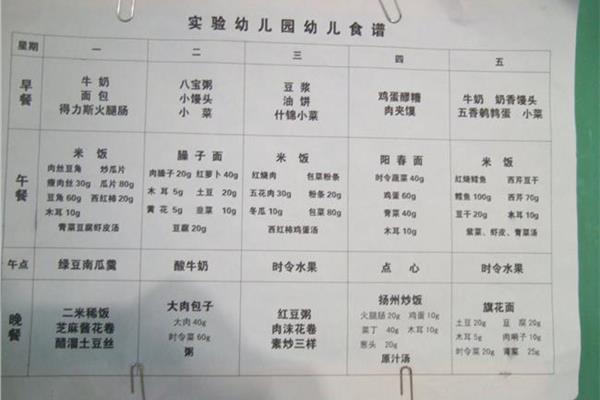 实验幼儿园幼儿食谱
星期 一 二 三 四 五
早餐
牛奶
面包
得力斯火腿肠
八宝粥
小馒头
小菜
豆浆
油饼
什锦小菜
鸡蛋醪糟
肉夹馍
牛奶 奶香馒头
五香鹌鹑蛋 小菜
午餐
米饭
肉丝豆角 炒瓜片
瘦肉丝30g 瓜片80g
豆角60g 西红柿20g
木耳10g
青菜豆腐虾皮汤
臊子面
肉臊子20g 红萝卜40g
木耳5g 土豆20g
黄花5g 韭菜10g
豆腐20g
米饭
红烧肉 包菜粉条
五花肉30g 粉条20g
冬瓜10g 包菜80g
西红柿鸡蛋汤
阳春面
时令蔬菜40g
鸡蛋60g
青菜40g
木耳10g
米饭
红烧鳕鱼 西芹豆干
鳕鱼100g 西芹70g
豆干20g 木耳10g
紫菜、虾皮、青菜汤
午点
绿豆南瓜羹
酸牛奶
时令水果
点心
时令水果
晚餐
二米稀饭
芝麻酱花卷
醋溜土豆丝
大肉包子
大肉40g
时令菜60g
粥
红豆粥
肉沫花卷
素炒三样
扬州炒饭
火腿肠20g 鸡蛋10g
菜丁40g 木耳10g
葱头20g
原汁汤
旗花面
土豆20g 豆腐20g
木耳5g 肉哨子10g
时令菜20g 25g